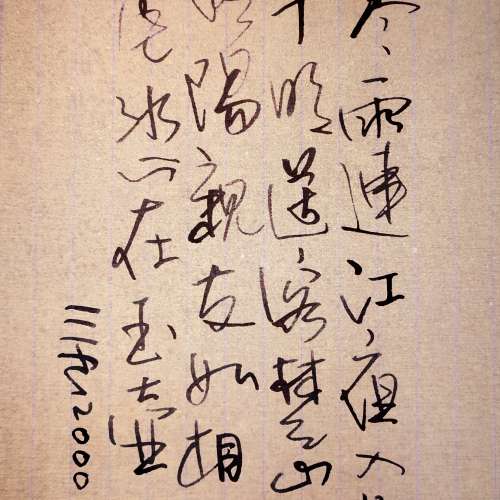 雨連江夜入
明送客楚山
陽親友如相
冰心在玉壺
2000